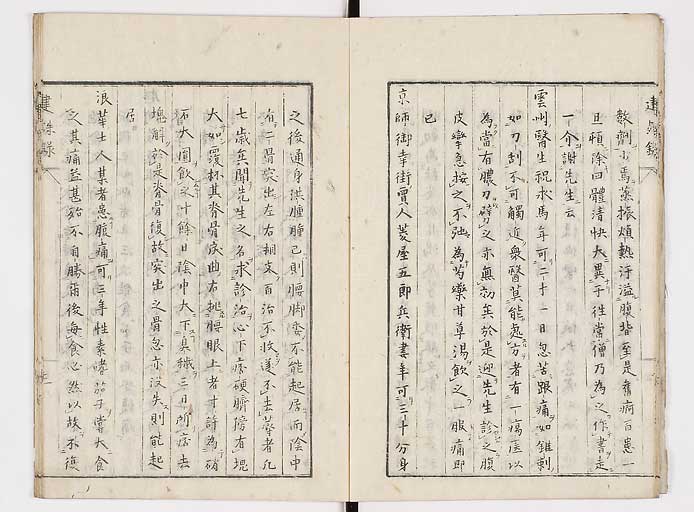 建殊録
數劑少焉蒸振煩熱汗溢腹背至是舊痾百患一
旦頓除四體清快大異于往嘗僧乃為之作書走
一介謝先生云
雲州醫生祝求馬年可二十一日忽苦跟痛如錐刺
如刀刮不可觸近衆醫莫能處方者有一瘍医以
為當有膿刀劈之亦無効矣於是迎先生診之腹
皮攣急按之不弛為芍藥甘草湯飲之一服痛即
已
京師御幸街賈人菱屋五郎兵衛妻年可三十分身
之後通身洪腫腫已則腰脚委不能起居而陰中
有二骨突出左右相夾百治不收遂不去蓐者凡
七歳矣聞先生之名求診治心下痞硬臍傍有塊
大如覆杯其脊骨戾曲右挑腰眼上者寸許為硝
石大圓飲之十餘日陰中大下臭穢三日所痞去
塊解於是脊骨復故突出之骨忽亦没失則能起
居
浪華士人某者患腹痛可三年性素嗜茄子嘗大食
之其痛益甚殆不自勝後每食必然以故不復
建殊録